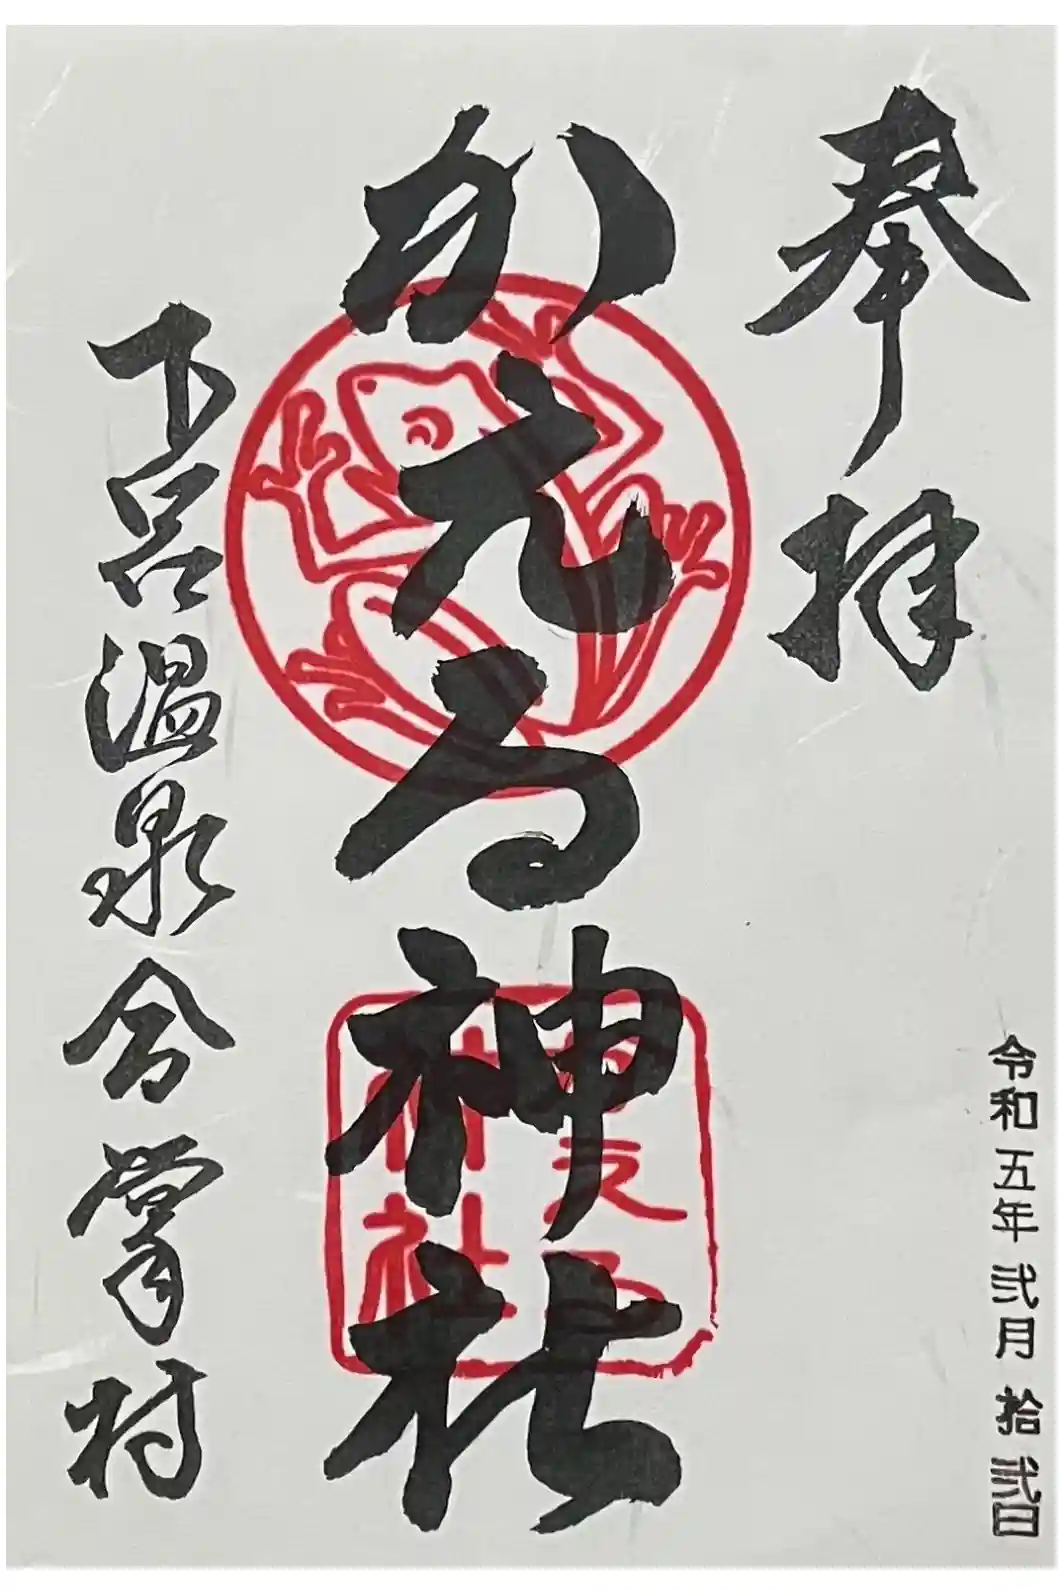 奉拝
令和五年弐月拾弐日
かえる神社
下呂温泉合掌村